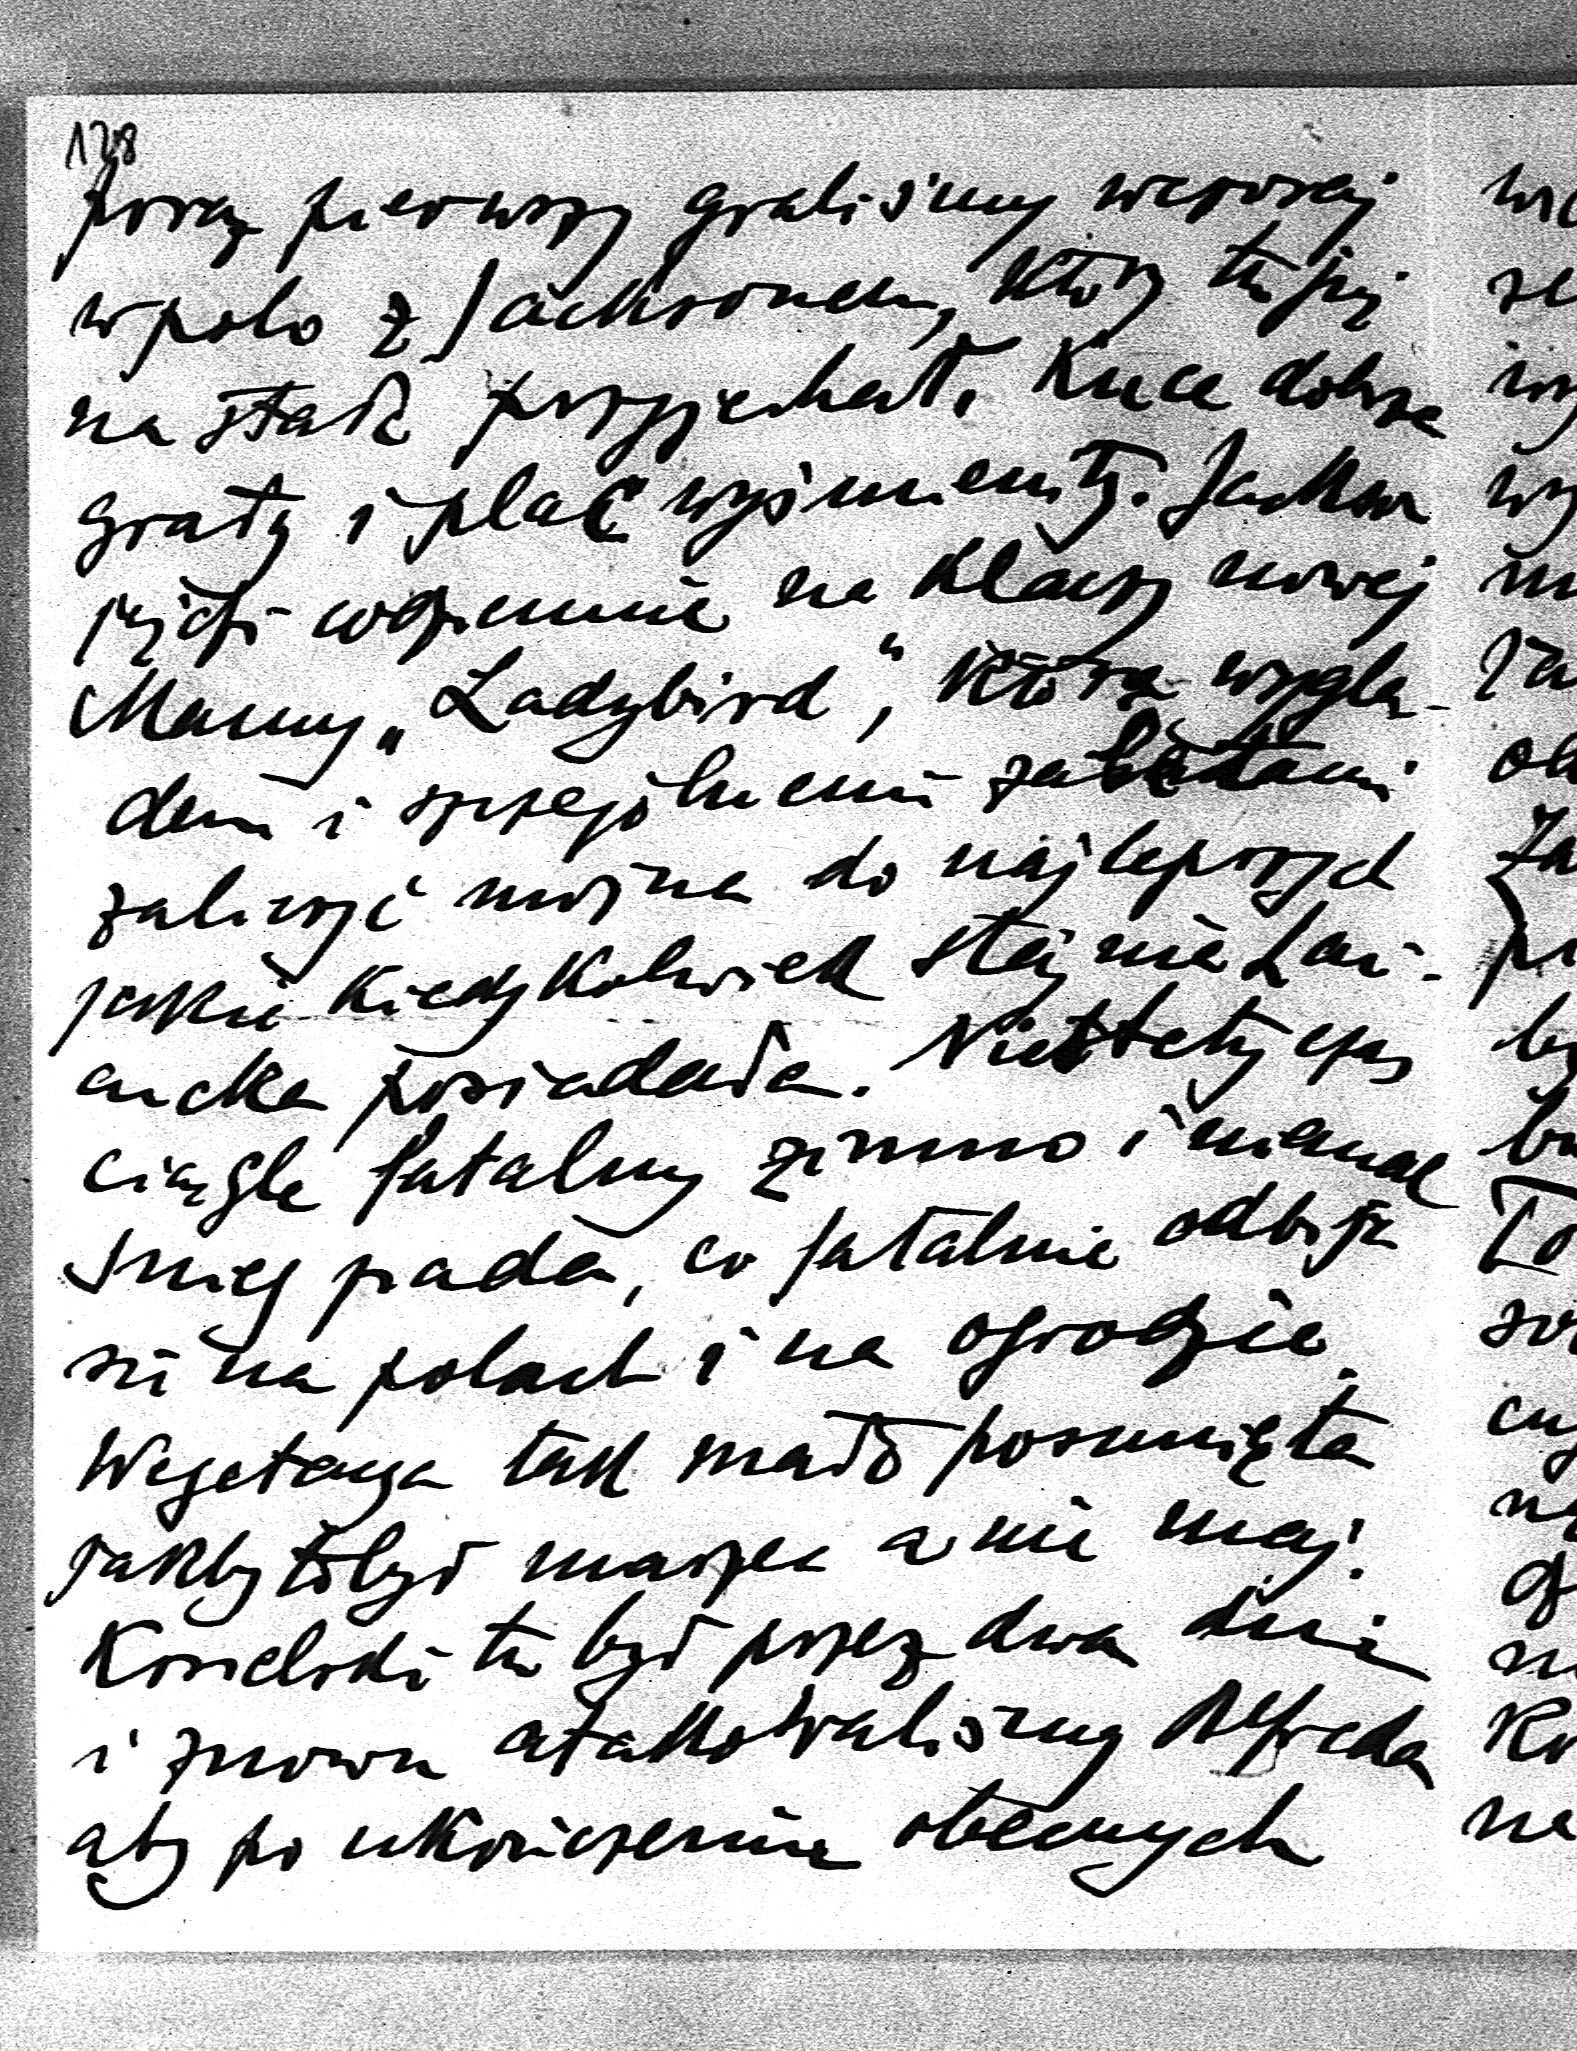 128
poraz pierwszy graliśmy wczoraj
w polo z Jacksonem, który tu już
na stałe przyjechał. Kuce dobrze
grały i plac wyśmienity. Jackson
jeździ codziennie na klaczy nowej
Mamy „Ladybird”, która wyglą-
dem i szczególnemi zaletami
zaliczyć można do najlepszych
jakie kiedykolwiek stajnia Łań-
cucka posiadała. Niestety czas
ciągle fatalny zimno i nieraz
śnieg pada, co fatalnie odbija
się na polach i na ogrodzie.
Wegetacya tak mało posunięta
jakby to był marzec a nie maj.
Kościelski tu był przez dwa dni
i znowu atakowaliśmy Alfreda
aby po ukończeniu obecnych